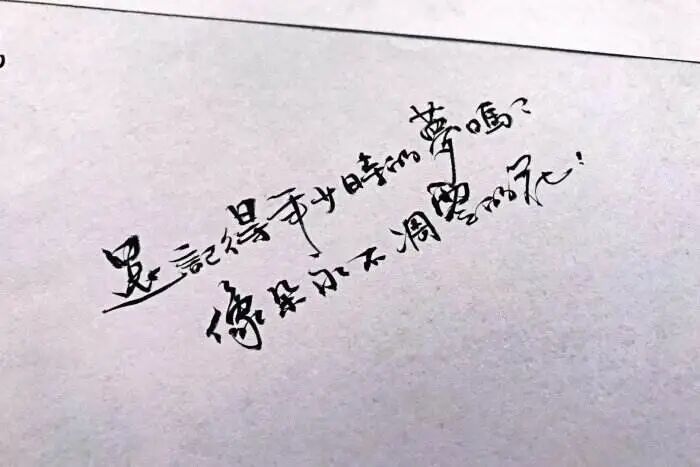 還記得年少時的夢嗎？
像朵永不凋零的花！